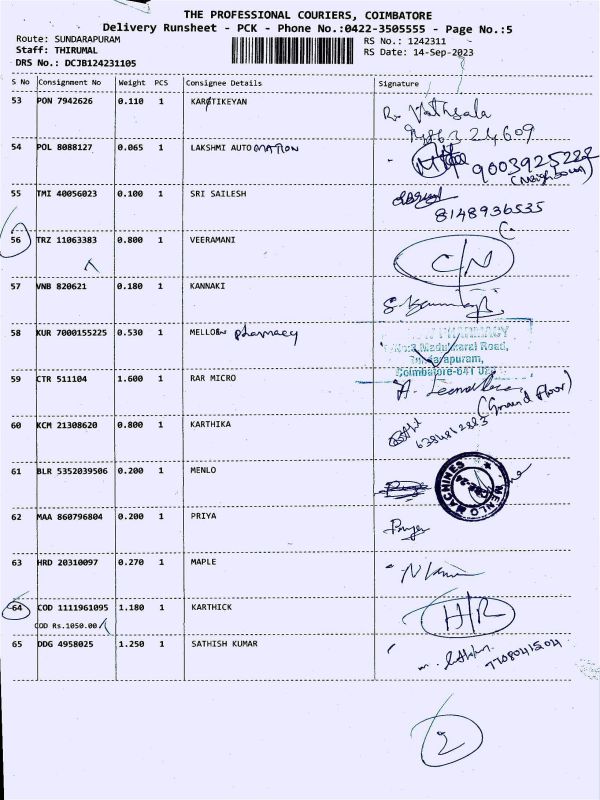 THE PROFESSIONAL COURIERS, COIMBATORE
Delivery Runsheet - PCK - Phone No.:0422-3505555 - Page No.:5
Route: SUNDARAPURAM RS No.: 1242311
Staff: THIRUMAL RS Date: 14-Sep-2023
DRS No.: DCJB124231105
S No Consignment No Weight PCS Consignee Details Signature
53 PON 7942626 0.110 1 KARTIKEYAN
54 POL 8088127 0.065 1 LAKSHMI AUTOMATION
9003925222
(Neighbour)
55 TMI 40056023 0.100 1 SRI SAILESH
8148936535
56 TRZ 11063383 0.800 1 VEERAMANI C/N
57 VNB 820621 0.180 1 KANNAKI
58 KUR 7000155225 0.530 1 MELLOW pharmacy
PHARMACY
Road,
Coimbatore-641
59 CTR 511104 1.600 1 RAR MICRO
(Ground floor)
60 KCM 21308620 0.800 1 KARTHIKA
61 BLR 5352039506 0.200 1 MENLO
MENLO MACHINES
62 MAA 860796804 0.200 1 PRIYA Priya
63 HRD 20310097 0.270 1 MAPLE
64 COD 1111961095 1.180 1 KARTHICK H/R
COD Rs.1050.00/
65 DDG 4958025 1.250 1 SATHISH KUMAR
2